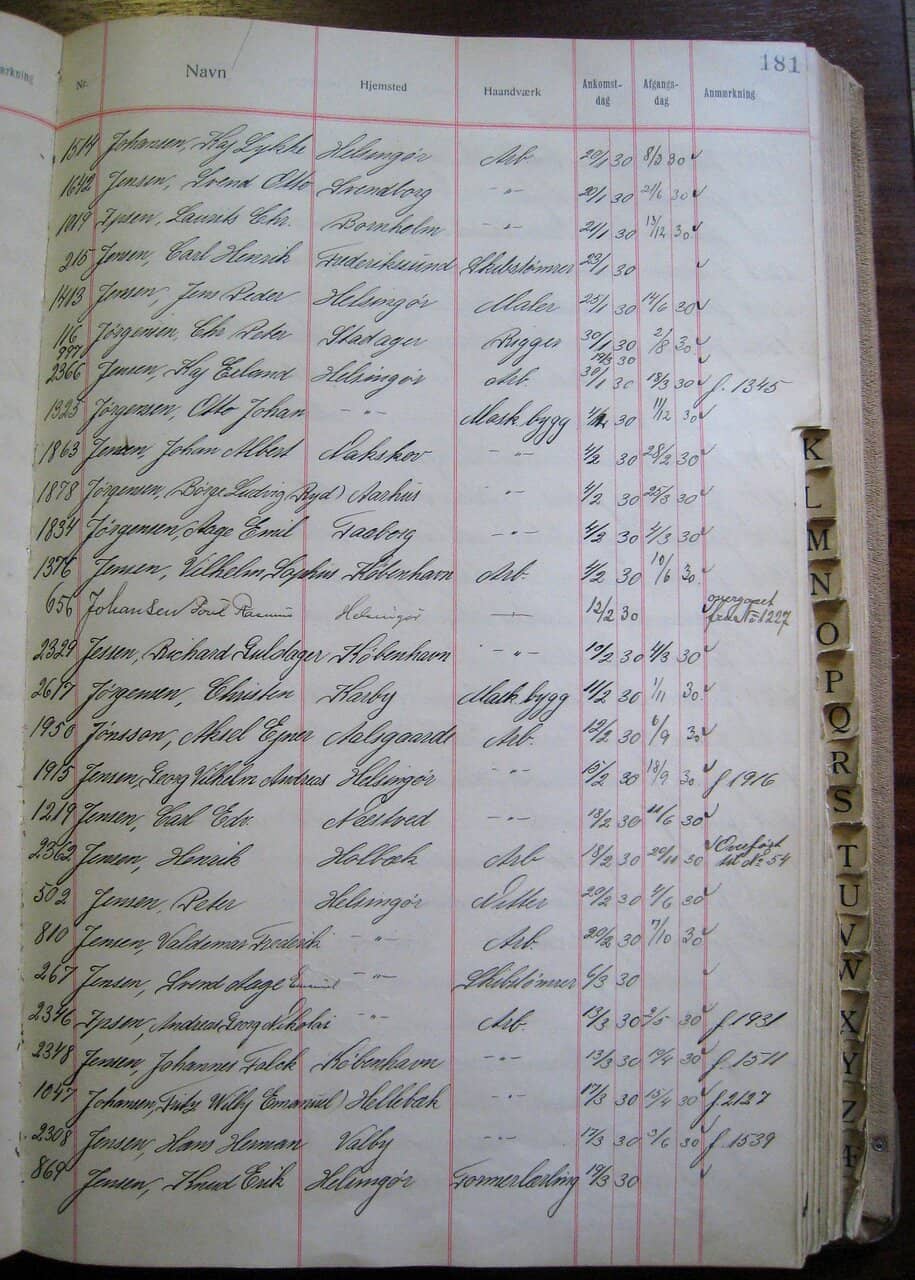 181
ærkning Nr. Navn Hjemsted Haandværk Ankomst-dag Afgangs-dag Anmærkning
1514 Johansen, Kaj Lykke Helsingør Arb. 20/1 30 8/3 30 ✓
1642 Jensen, Svend Otto Svendborg -"- 20/1 30 21/6 30 ✓
1019 Ipsen, Laurits Chr. Bornholm -"- 21/1 30 13/12 30. ✓
215 Jensen, Carl Henrik Frederikssund Skibstømrer 23/1 30 ✓
1413 Jensen, Jens Peder Helsingør Maler 25/1 30 14/6 30 ✓
116 Jørgensen, Chr Peter Stadager Rigger 30/1 30 2/8 30. ✓
997 19/9 30 ✓
2366 Jensen, Kaj Erland Helsingør Arb. 30/1 30 18/3 30 ✓ f. 1345
1325 Jørgensen, Otto Johan -"- Mask.bygg 30 11/12 30 ✓
1863 Jensen, Johan Albert Nakskov -"- 4/2 30 28/2 30 ✓
1878 Jørgensen, Børge Ludvig Ryd) Aarhus -"- 4/2 30 25/3 30 ✓
1834 Jørgensen, Aage Emil Faaborg -"- 4/2 30 4/3 30 ✓
1376 Jensen, Vilhelm Sophus København Arb. 4/2 30 10/6 30. ✓
656 Johansen Poul Rasmus Helsingør -"- 12/2 30 No 1227
2329 Jessen, Richard Guldager København -"- 10/2 30 4/3 30 ✓
2617 Jørgensen, Christen Karby Mask.bygg 11/2 30 1/11 30. ✓
1950 Jönsson, Aksel Ejner Aalsgaarde Arb. 12/2 30 6/9 30 ✓
1915 Jensen, Georg Vilhelm Andreas Helsingør -"- 15/2 30 18/9 30 ✓ f 1916
1219 Jensen, Carl Edv. Næstved -"- 18/2 30 11/6 30 ✓
2362 Jensen, Henrik Holbæk Arb 18/2 30 20/11 30 ✓ Overført til No 54
502 Jensen, Peter Helsingør Nitter 20/2 30 4/6 30 ✓
810 Jensen, Valdemar Frederik -"- Arb. 20/2 30 7/10 30 ✓
267 Jensen, Svend Aage Emanuel -"- Skibstømrer 6/3 30 ✓
2346 Ipsen, Andreas Georg Nikolai -"- Arb. 13/3 30 2/5 30 ✓ f. 1931
2348 Jensen, Johannes Falck København -"- 13/3 30 19/4 30 ✓ f. 1511
1047 Johansen, Fritz Willy Emanuel) Hellebæk -"- 17/3 30 15/4 30 ✓ f 2127
2308 Jensen, Hans Herman Valby -"- 17/3 30 3/6 30 ✓ f. 1539
869 Jensen, Knud Erik Helsingør Formerlærling 19/3 30 ✓
K
L
M
N
O
P
Q
R
S
T
U
V
W
X
Y
Z